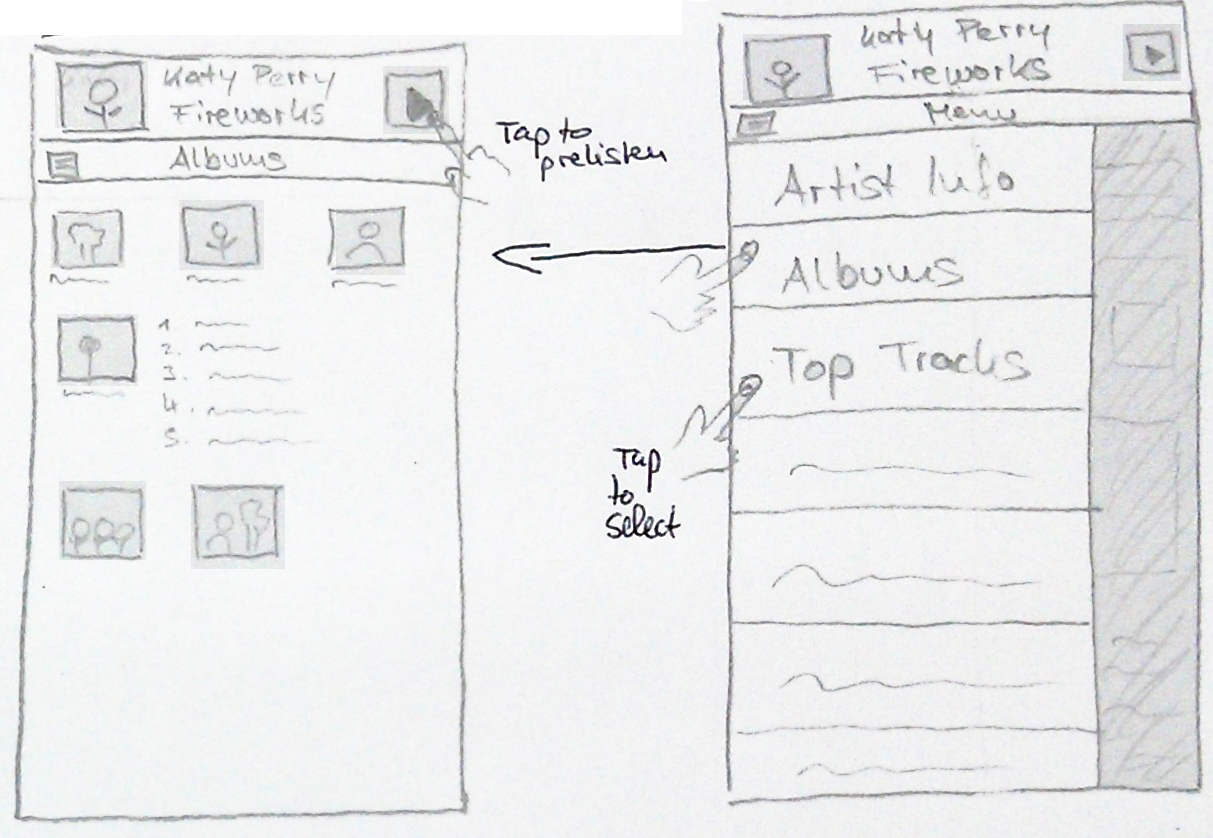 Katy Perry
Fireworks
Albums
1.
2.
3.
4.
5.
Tap to
prelisten
Katy Perry
Fireworks
Menu
Artist Info
Albums
Top Tracks
Tap
to
select